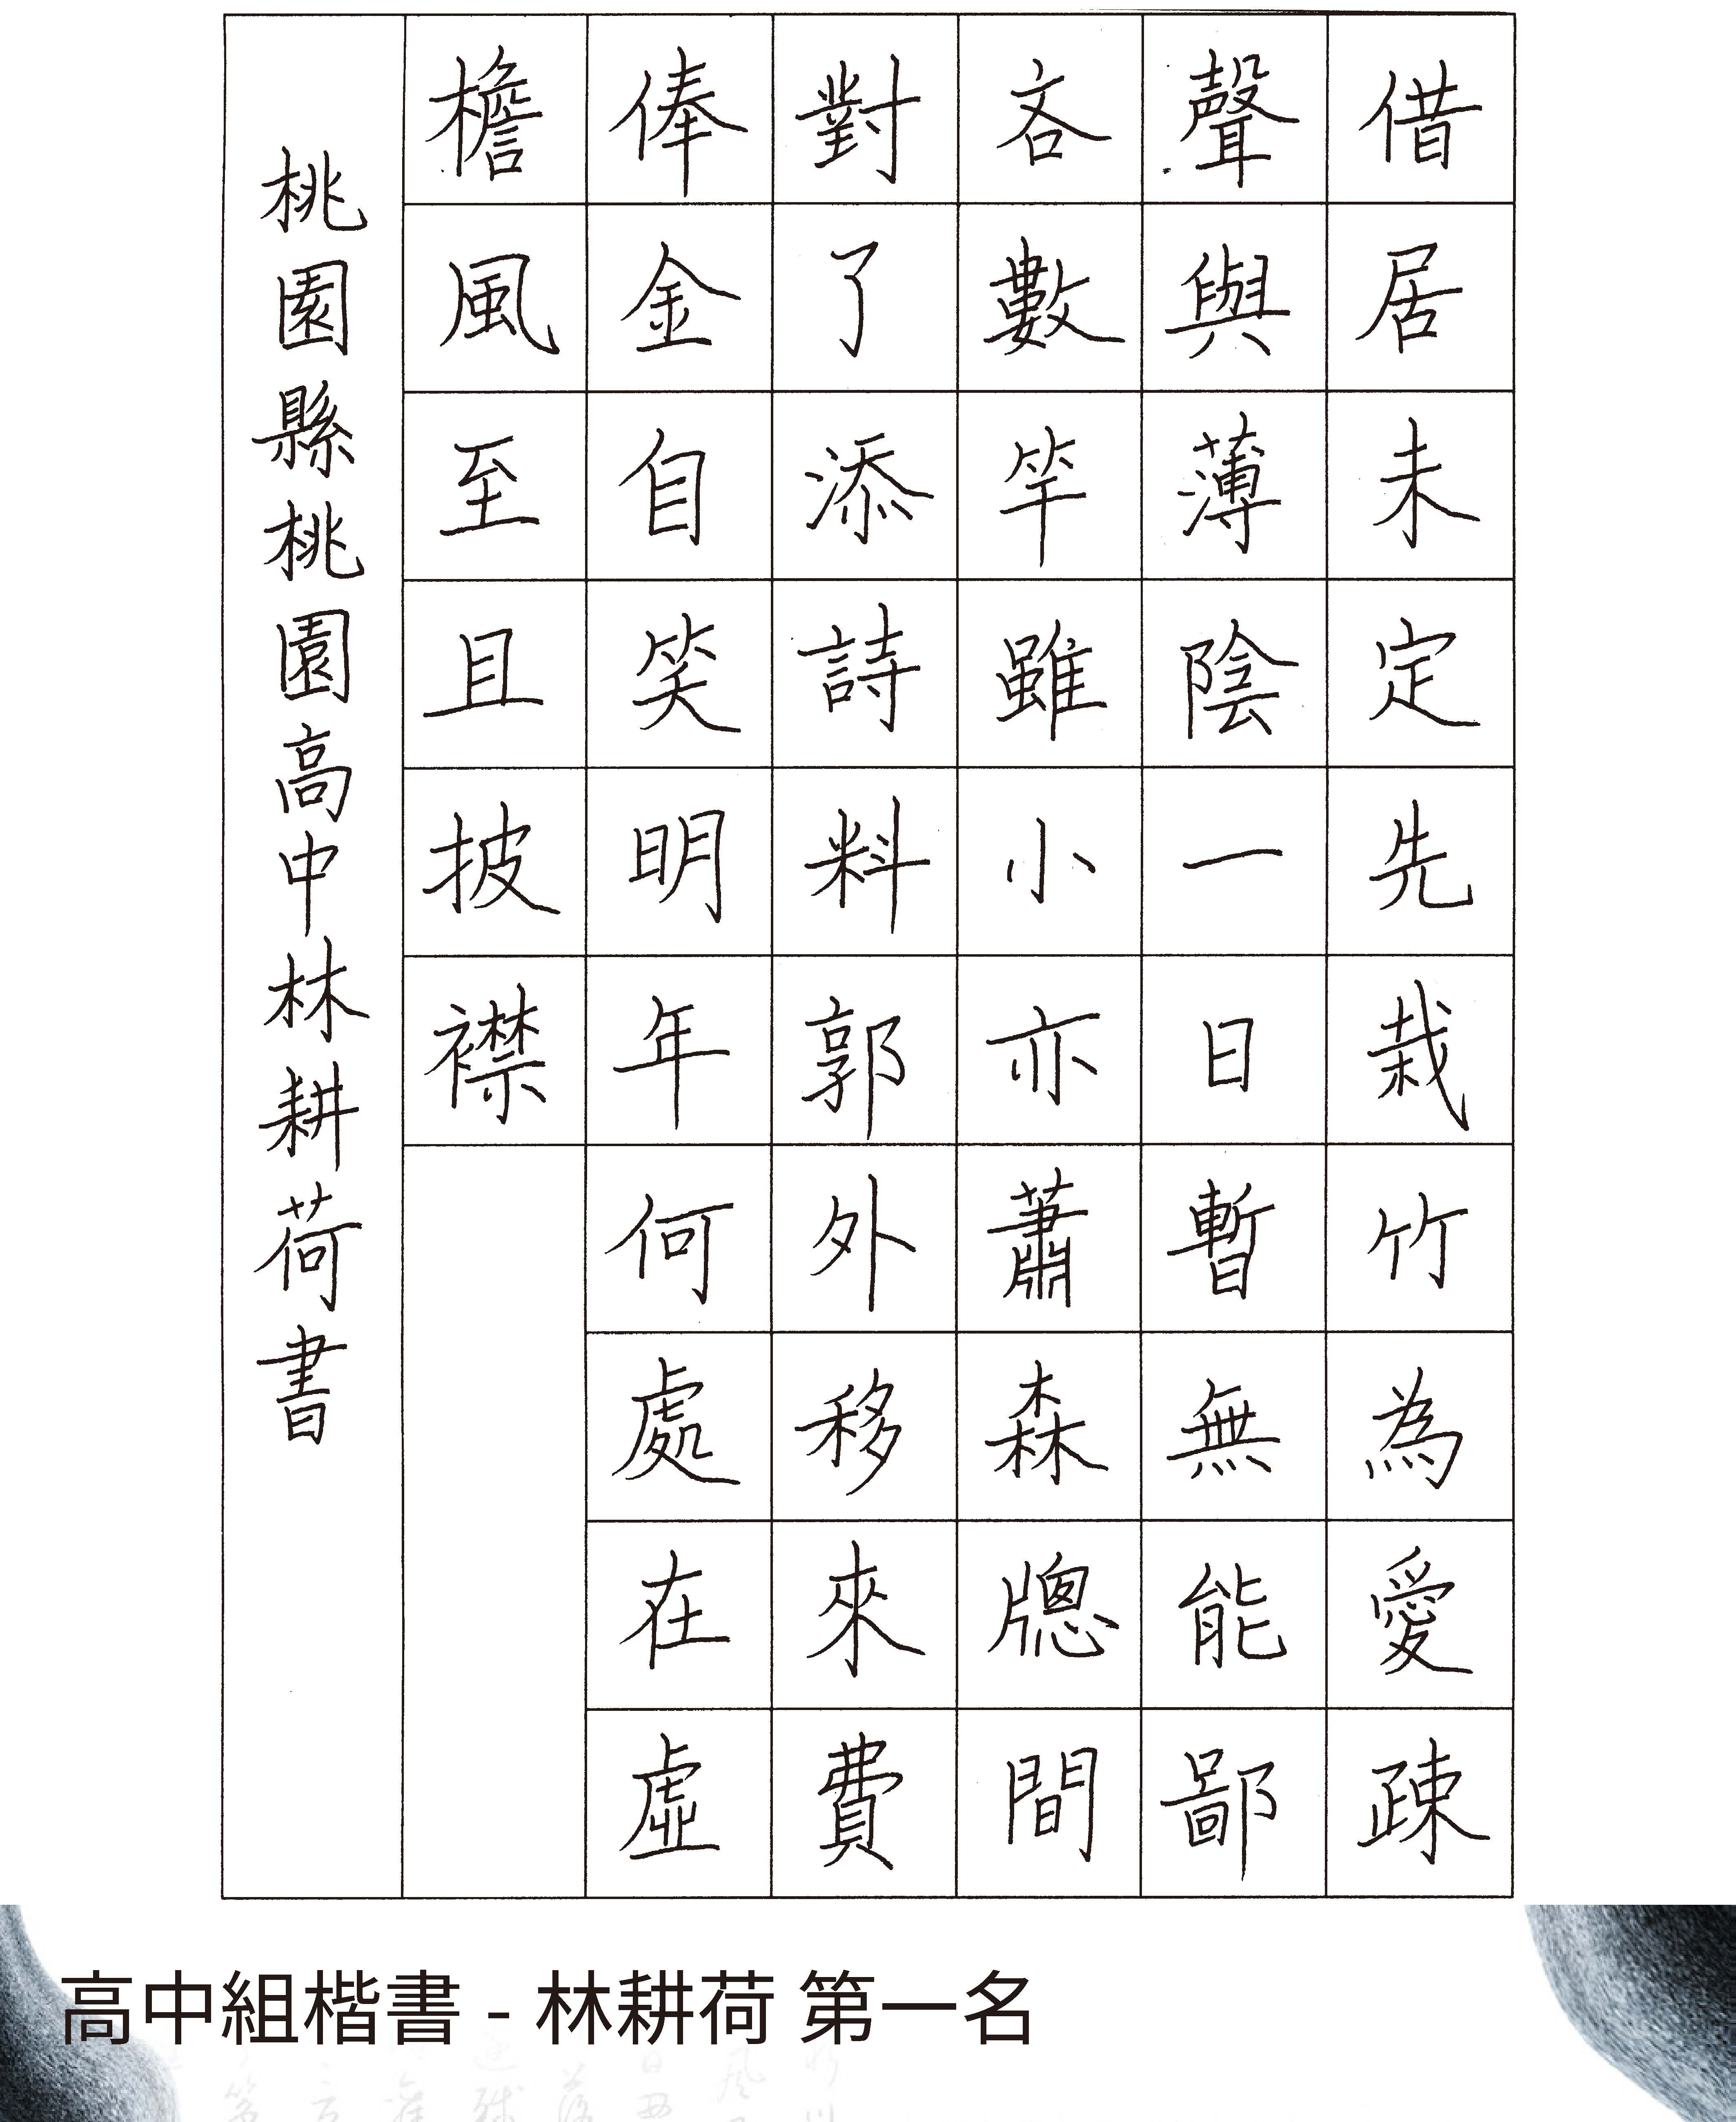 借居未定先栽竹為愛疎
聲與薄陰一日暫無能鄙
吝數竿雖小亦蕭森牕間
對了添詩料郭外移來費
俸金自笑明年何處在虛
檐風至且披襟
桃園縣桃園高中林耕荷書
高中組楷書 - 林耕荷 第一名